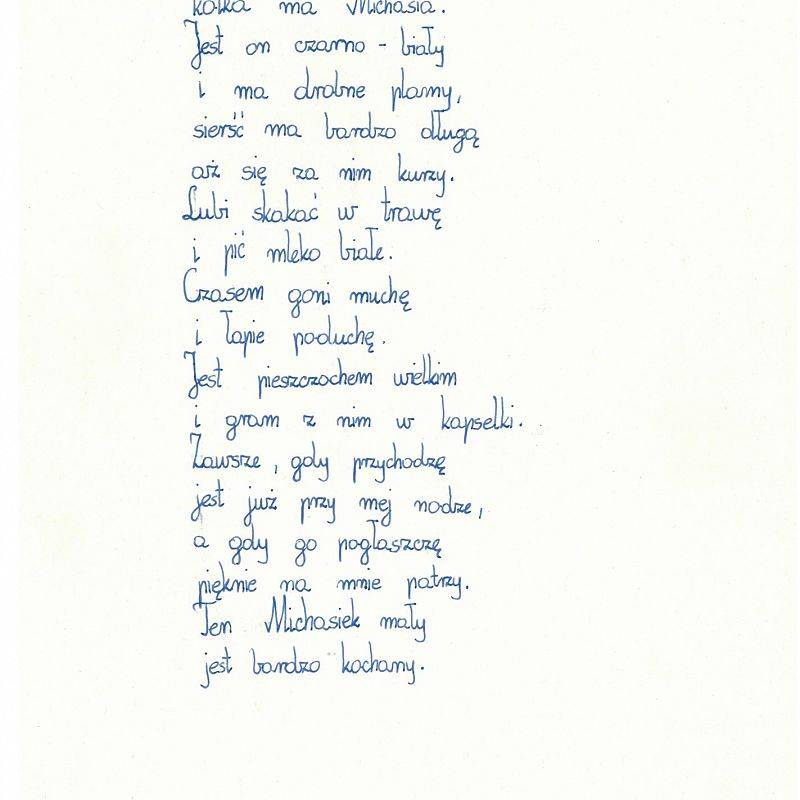 kotka ma Michasia.
Jest on czarno - biały
i ma drobne plamy,
sierść ma bardzo długą
aż się za nim kurzy.
Lubi skakać w trawę
i pić mleko białe.
Czasem goni muchę
i łapie poduchę.
Jest pieszczochem wielkim
i gram z nim w kapselki.
Zawsze, gdy przychodzę
jest już przy mej nodze,
a gdy go pogłaszczę
pięknie na mnie patrzy.
Ten Michasiek mały
jest bardzo kochany.